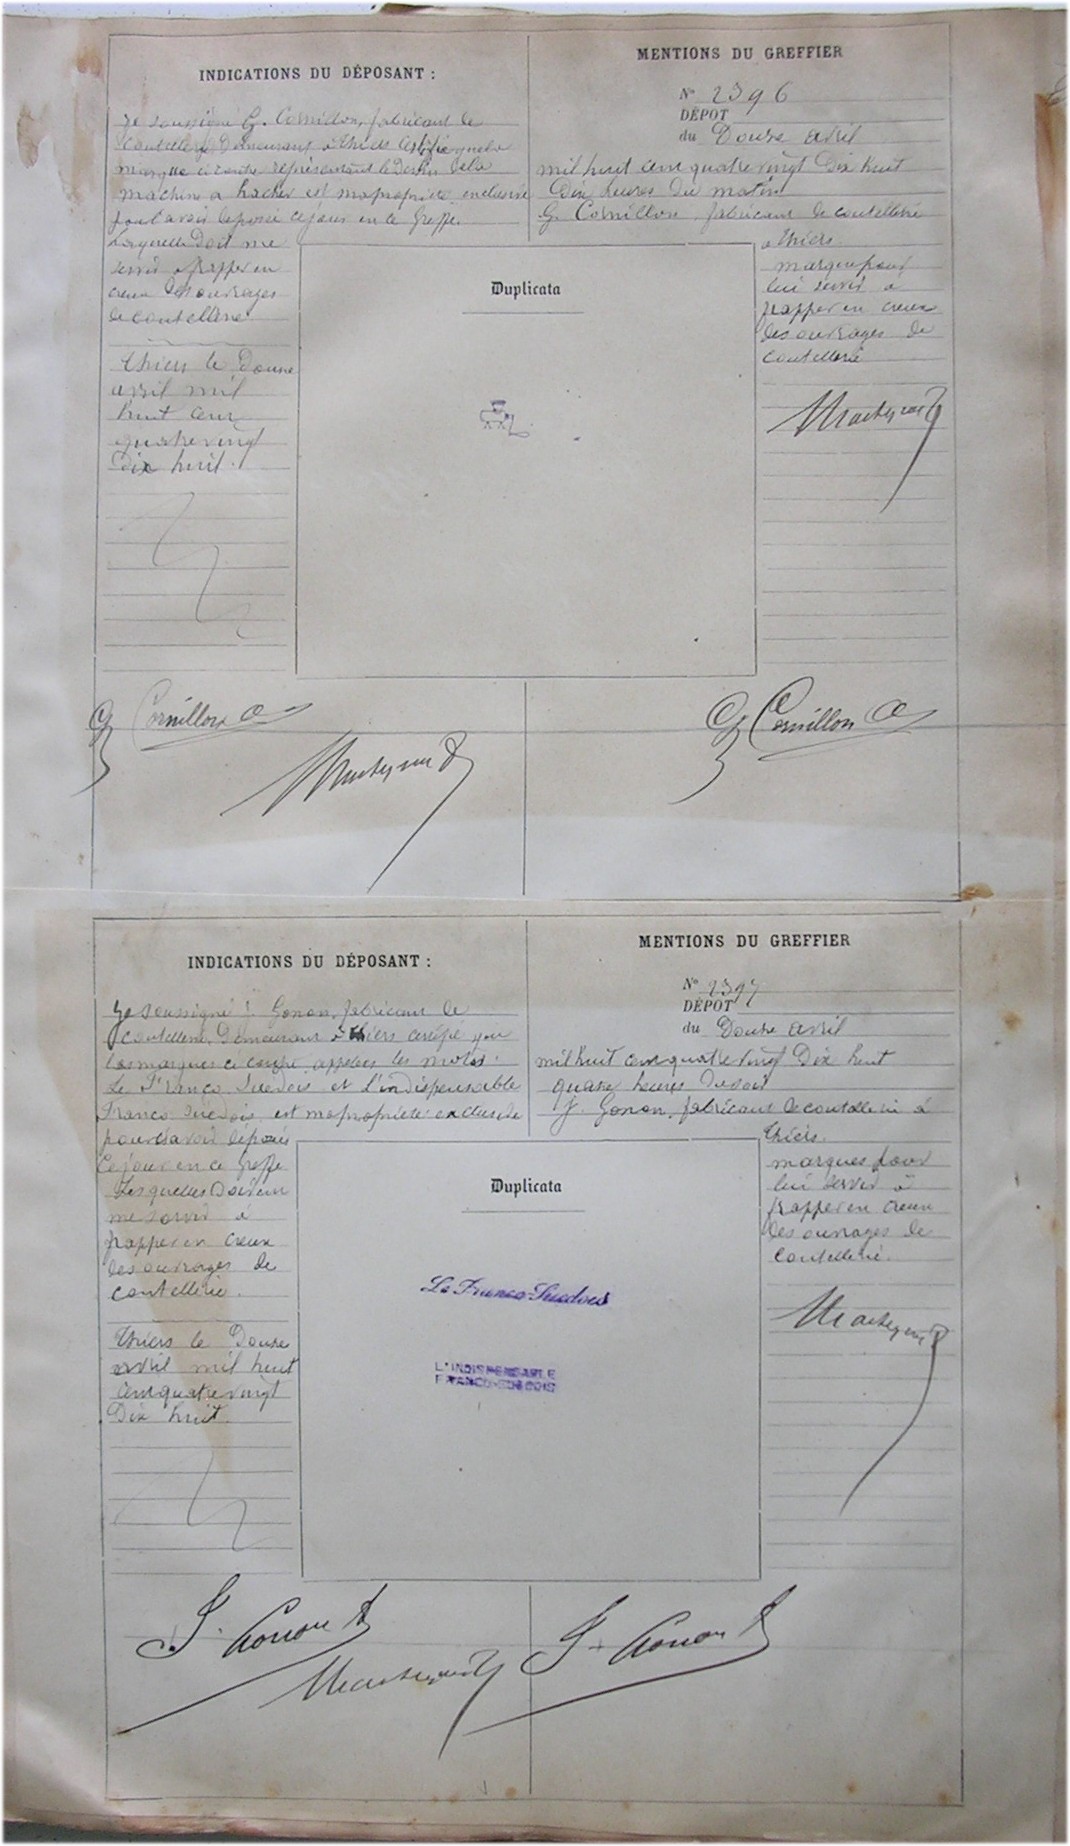 INDICATIONS DU DÉPOSANT :
Je soussigné G. Cornillon, fabricant de
coutellerie, Demeurant à Thiers certifie que la
marque ci contre représentant le Dessin de la
machine à hacher est ma propriété exclusive
pour l'avoir déposée ce jour en ce Greffe.
Laquelle Doit me
servir à frapper en
creux des ouvrages
de coutellerie
Thiers le Douze
avril mil
huit cent
quatre vingt
Dix huit.
MENTIONS DU GREFFIER
N° 2396
DÉPÔT
du Douze avril
mil huit cent quatre vingt Dix huit
Dix heures du matin
G. Cornillon, fabricant de coutellerie
à Thiers.
marque pour
lui servir à
frapper en creux
des ouvrages de
coutellerie
Duplicata
G Cornillon
G Cornillon
INDICATIONS DU DÉPOSANT :
Je soussigné J. Gonon, fabricant de
coutellerie, Demeurant à Thiers certifie que
les marques ci contre appelées les mots :
Le Franco Suédois et L'indispensable
Franco Suédois est ma propriété exclusive
pour avoir déposés
ce jour en ce Greffe
Lesquelles Doivent
me servir à
frapper en creux
des ouvrages de
coutellerie.
Thiers le Douze
avril mil huit
cent quatre vingt
Dix huit.
MENTIONS DU GREFFIER
N° 2397
DÉPÔT
du Douze avril
mil huit cent quatre vingt Dix huit
quatre heures du soir
J. Gonon, fabricant de coutellerie à
Thiers.
marques pour
lui servir à
frapper en creux
des ouvrages de
coutellerie.
Duplicata
Le Franco-Suédois
L'INDISPENSABLE
FRANCO-SUEDOIS
J. Gonon
J. Gonon